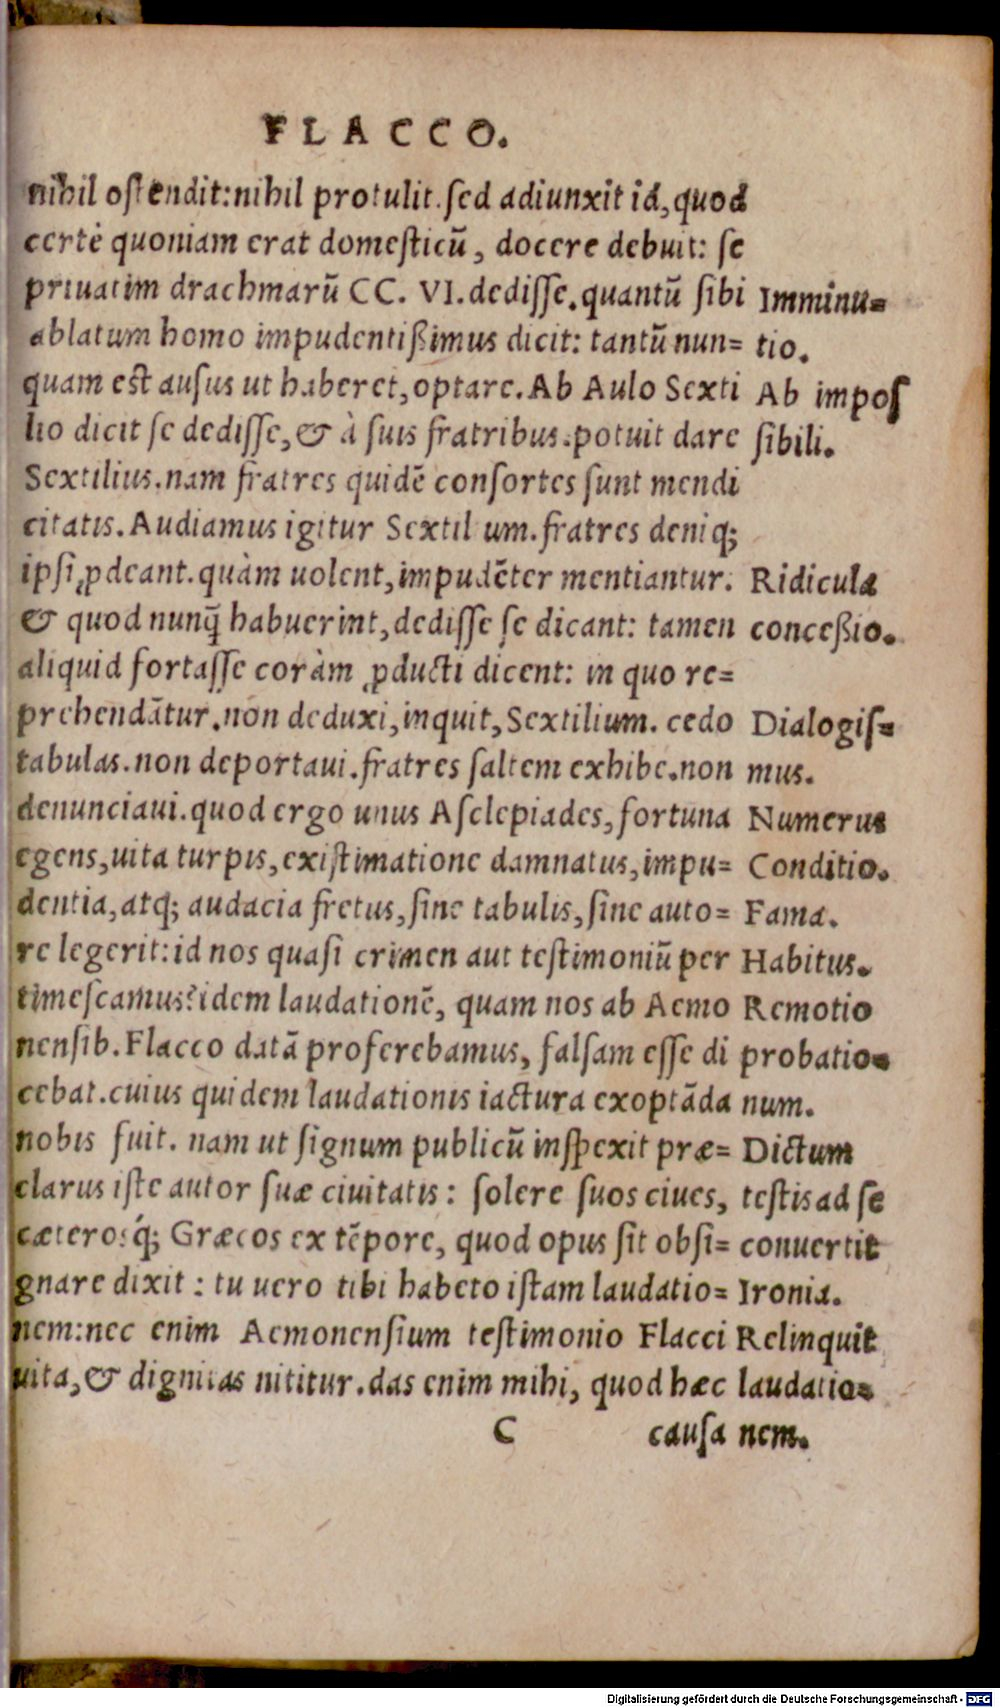 FLACCO.
nihil ostendit:nihil protulit.sed adiunxit id,quod
certè quoniam erat domesticū, docere debuit: se
priuatim drachmarū CC. VI.dedisse.quantū sibi
ablatum homo impudentißimus dicit: tantū nun=
quam est ausus ut haberet,optare.Ab Aulo Sexti
lio dicit se dedisse,& à suis fratribus.potuit dare
Sextilius.nam fratres quidē consortes sunt mendi
citatis.Audiamus igitur Sextil um.fratres deniq;
ipsi ꝓdeant.quàm uolent,impudēter mentiantur.
& quod nunq̄ habuerint,dedisse se dicant: tamen
aliquid fortasse coràm ꝓducti dicent: in quo re=
prehendātur.non deduxi,inquit,Sextilium. cedo
tabulas.non deportaui.fratres saltem exhibe.non
denunciaui.quod ergo unus Asclepiades,fortuna
egens,uita turpis,existimatione damnatus,impu=
dentia,atq; audacia fretus,sine tabulis,sine auto=
re legerit:id nos quasi crimen aut testimoniū per
timescamus?idem laudationē, quam nos ab Aemo
nensib.Flacco datā proferebamus, falsam esse di
cebat.cuius quidem laudationis iactura exoptāda
nobis fuit. nam ut signum publicū inspexit præ=
clarus iste autor suæ ciuitatis: solere suos ciues,
cæterosq́; Græcos ex tēpore, quod opus sit obsi=
gnare dixit : tu uero tibi habeto istam laudatio=
nem:nec enim Aemonensium testimonio Flacci
uita,& dignitas nititur.das enim mihi, quod hæc
C causa
Imminu=
tio.
Ab impos
sibili.
Ridicula
conceßio.
Dialogis=
mus.
Numerus
Conditio.
Fama.
Habitus.
Remotio
probatio=
num.
Dictum
testis ad se
conuertit
Ironia.
Relinquit
laudatio=
nem.
Digitalisierung gefördert durch die Deutsche Forschungsgemeinschaft - DFG